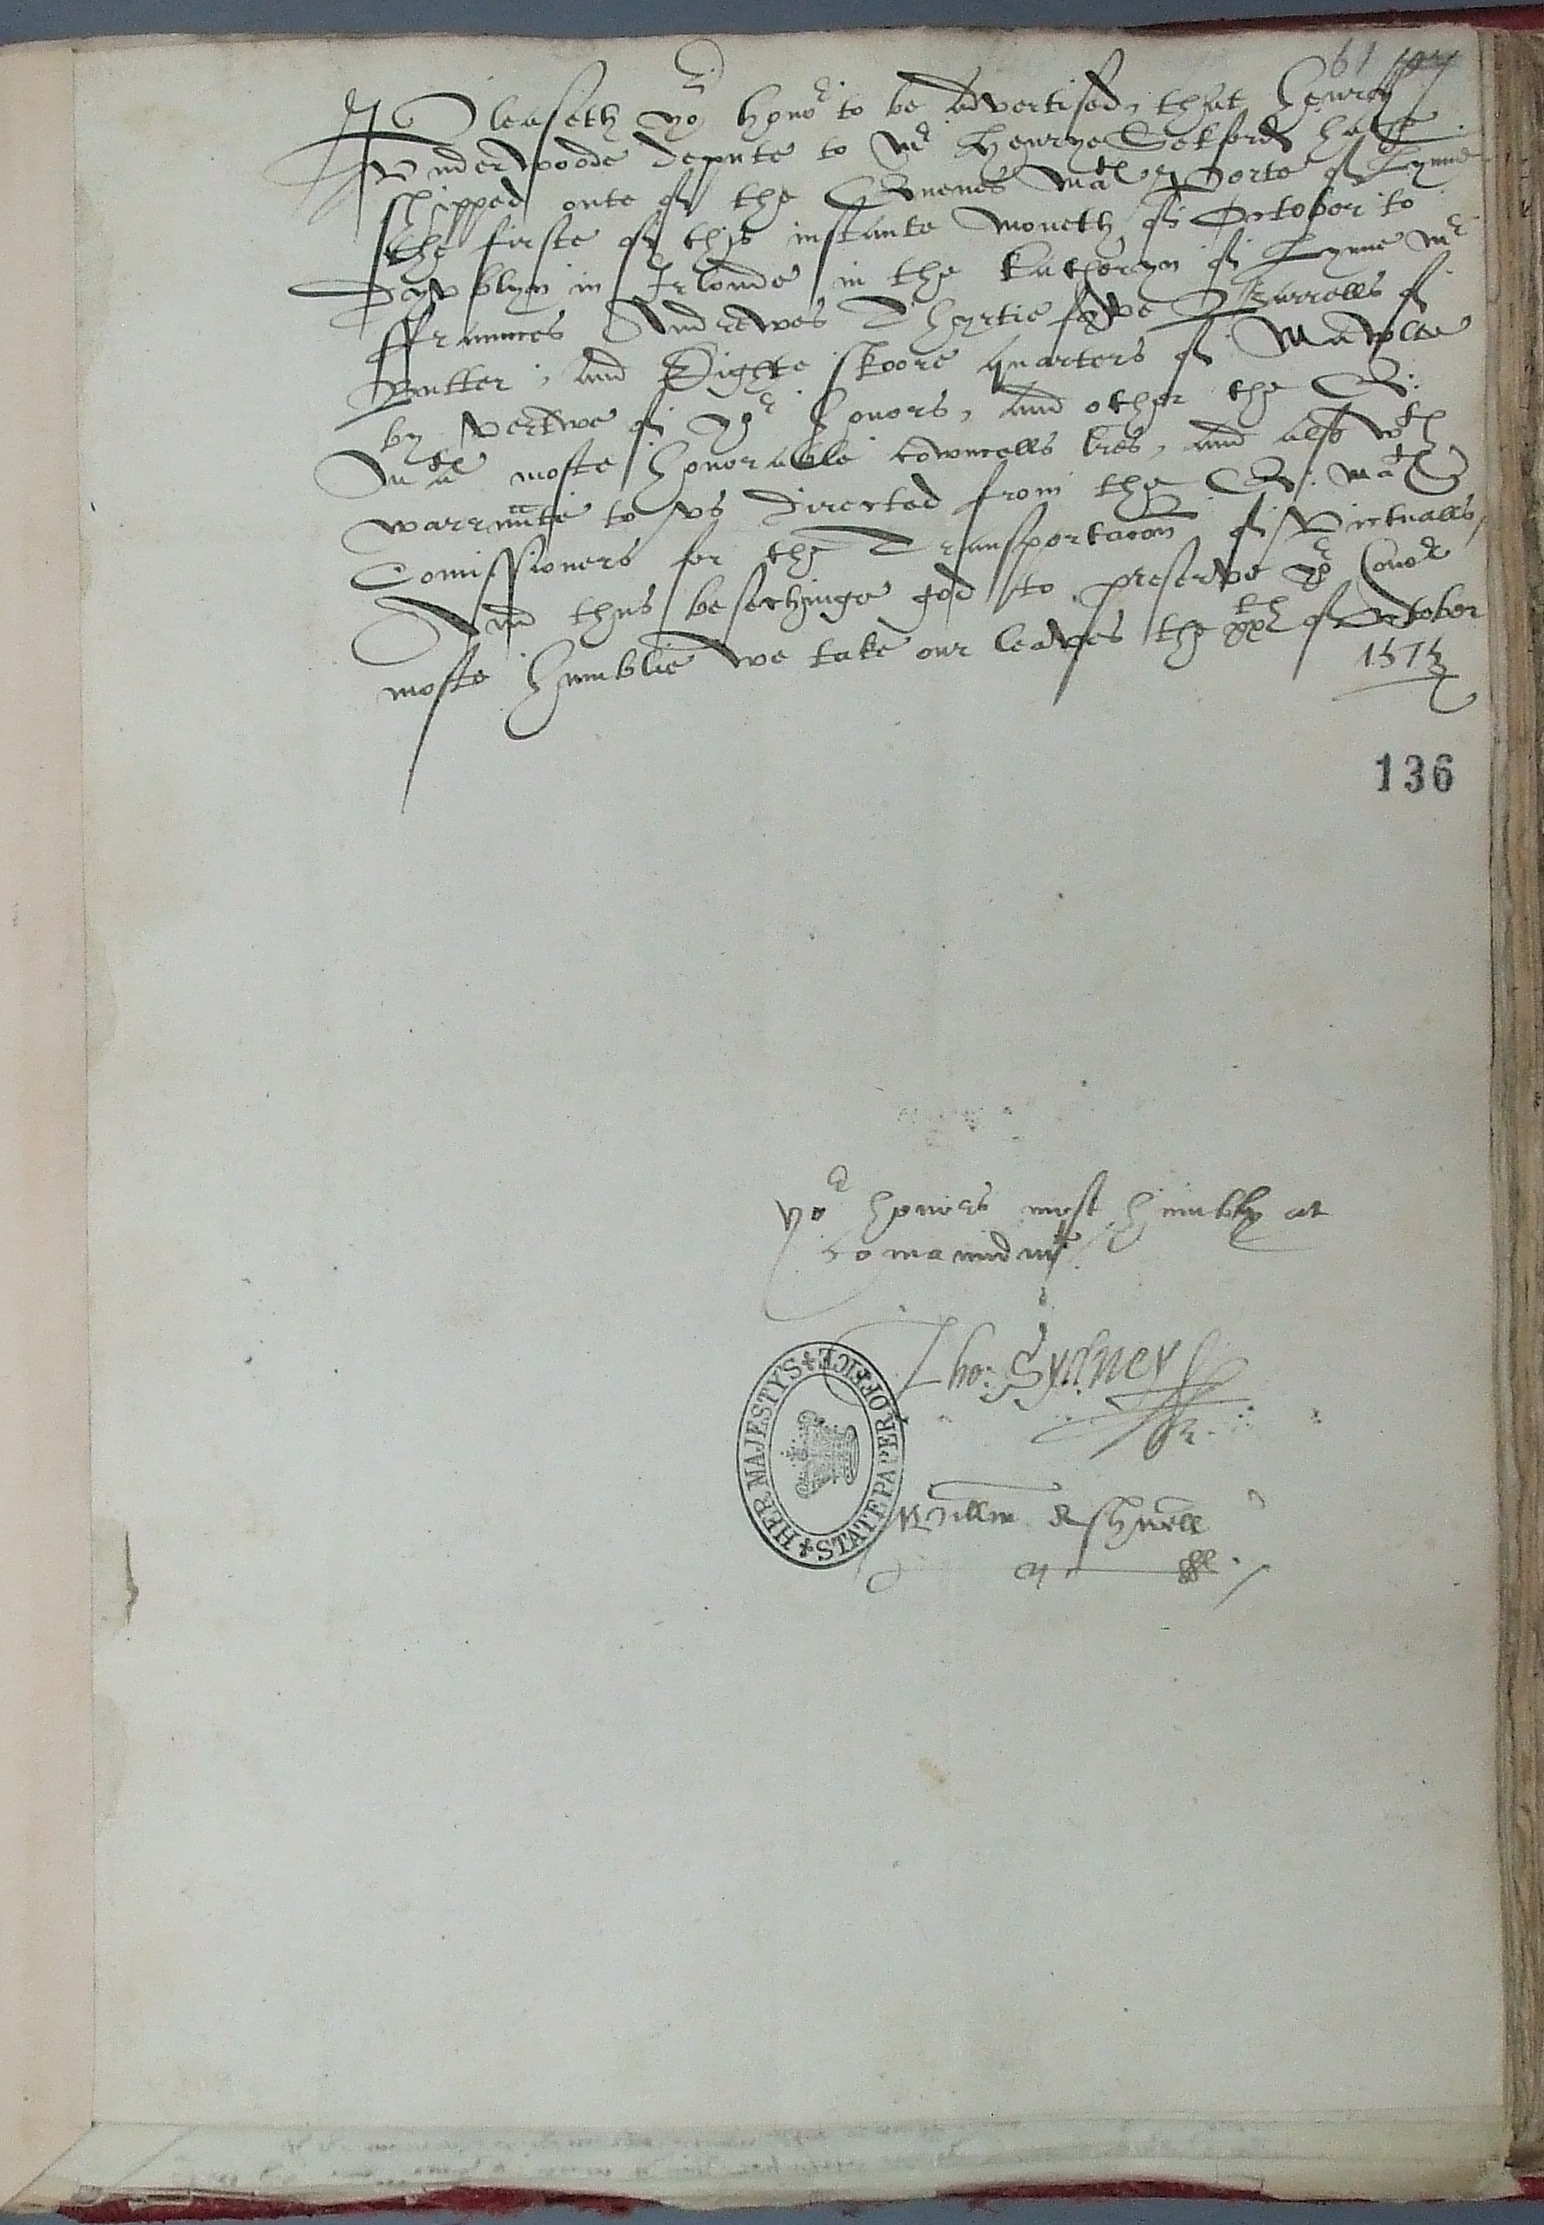 61
It Pleaseth yor honor to be advertised, that henrye
Underwoode depute to Mr Henrye Sekford hath
shipped oute of the Quenes Matis Porte of Lynne
the firste of this instante moneth of October to
Dyvblyn in Irlonde in the Katheryn of Lynne Mr
ffraunces Andrewes Thyrtie fyve Barrells of
Butter, and Eighte skoore quarters of Mawlte
by vertwe of yor honors, and other the Q:
Matis moste honorable cowncells lres, and also wth
warraunte to vs directed from the Q: Matis
Comissioners for the Transportacon of Victualls,
And thus besechinge god to preserve yor honor
moste humblie we take our leaves the xxth of October
1573
136
yor honors most humbly at
comaundmt
Tho: Sydney
Willm Ashwell
HER MAJESTY'S STATE PAPER OFFICE